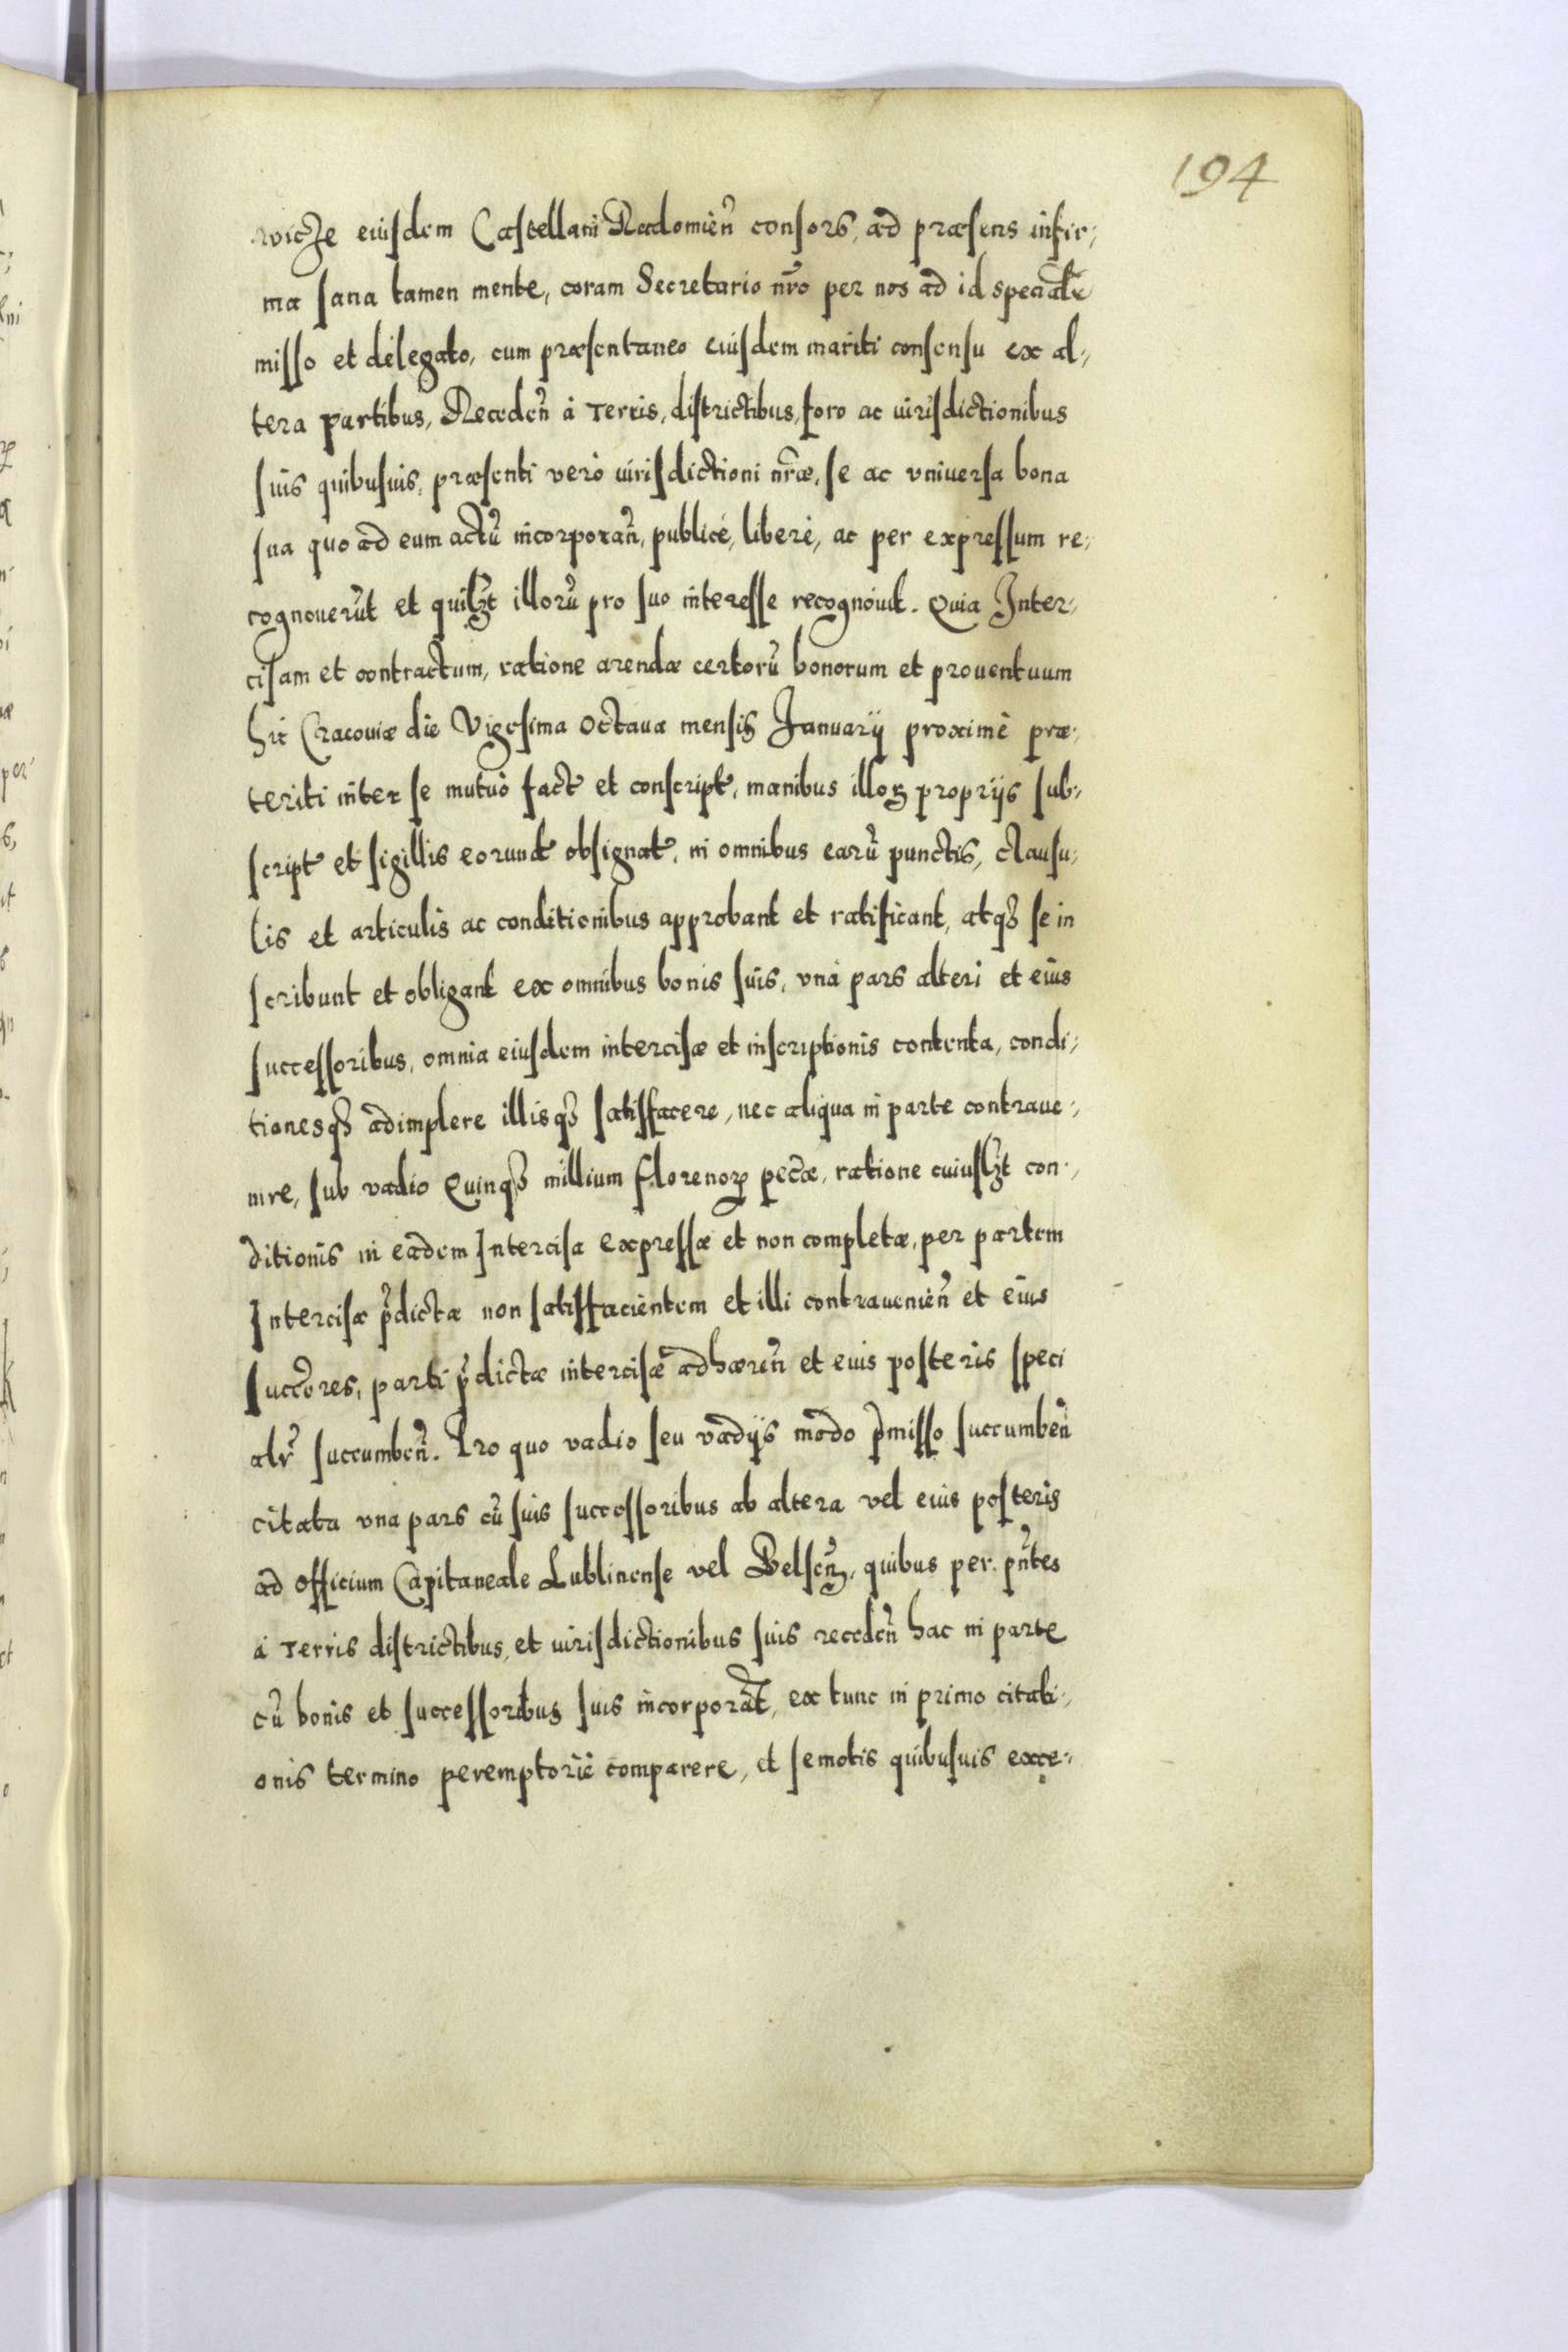 194
wicze eiusdem Castellani Radomien̄ consors, ad præsens infir-
ma sana tamen mente, coram Secretario nr̄o per nos ad id specialr̄
misso et delegato, cum præsentaneo eiusdem mariti consensu ex al-
tera partibus, Receden̄ à Terris, districtibus, foro ac iurisdictionibus
suis quibusuis, præsenti verò iurisdictioni nr̄æ, se ac vniuersa bona
sua quo ad eum actū incorporan̄, publicé, liberè, ac per expressum re-
cognouerūt et quilʒt illorū pro suo interesse recognouit. Quia Inter-
cisam et contractum, ratione arendæ certorū bonorum et prouentuum
hic Cracouiæ die Vigesima octaua mensis Januarij proximè præ-
teriti inter se mutuò fact̄ et conscript̄, manibus illoꝝ proprijs sub-
script̄ et sigillis eorund̄ obsignat̄, in omnibus earū punctis, clausu-
lis et articulis ac conditionibus approbant et ratificant, atqꝫ se in
scribunt et obligant ex omnibus bonis suis, vna pars alteri et eius
successoribus, omnia eiusdem intercisæ et inscriptionis contenta, condi-
tionesqꝫ adimplere illisqꝫ satisfacere, nec aliqua in parte contraue-
nire, sub vadio Quinqꝫ millium florenoꝝ pec̄æ, ratione cuiuslʒt con-
ditionis in eadem Intercisa expressæ et non completæ, per partem
Intercisæ p̄dictæ non satisfacientem et illi contrauenien̄ et eius
succ̄ores, parti p̄dictæ intercisæ adhæren̄ et eius posteris speci
alr̄ succumben̄. Pro quo vadio seu vadijs modo p̄misso succumben̄
citata vna pars cū suis successoribus ab altera vel eius posteris
ad officium Capitaneale Lublinense vel Belsen̄, quibus per pn̄tes
à Terris districtibus, et iurisdictionibus suis receden̄ hac in parte
cū bonis et successoribus suis incorporat̄, ex tunc in primo citati-
onis termino peremptoriè comparere, et semotis quibusuis exce-